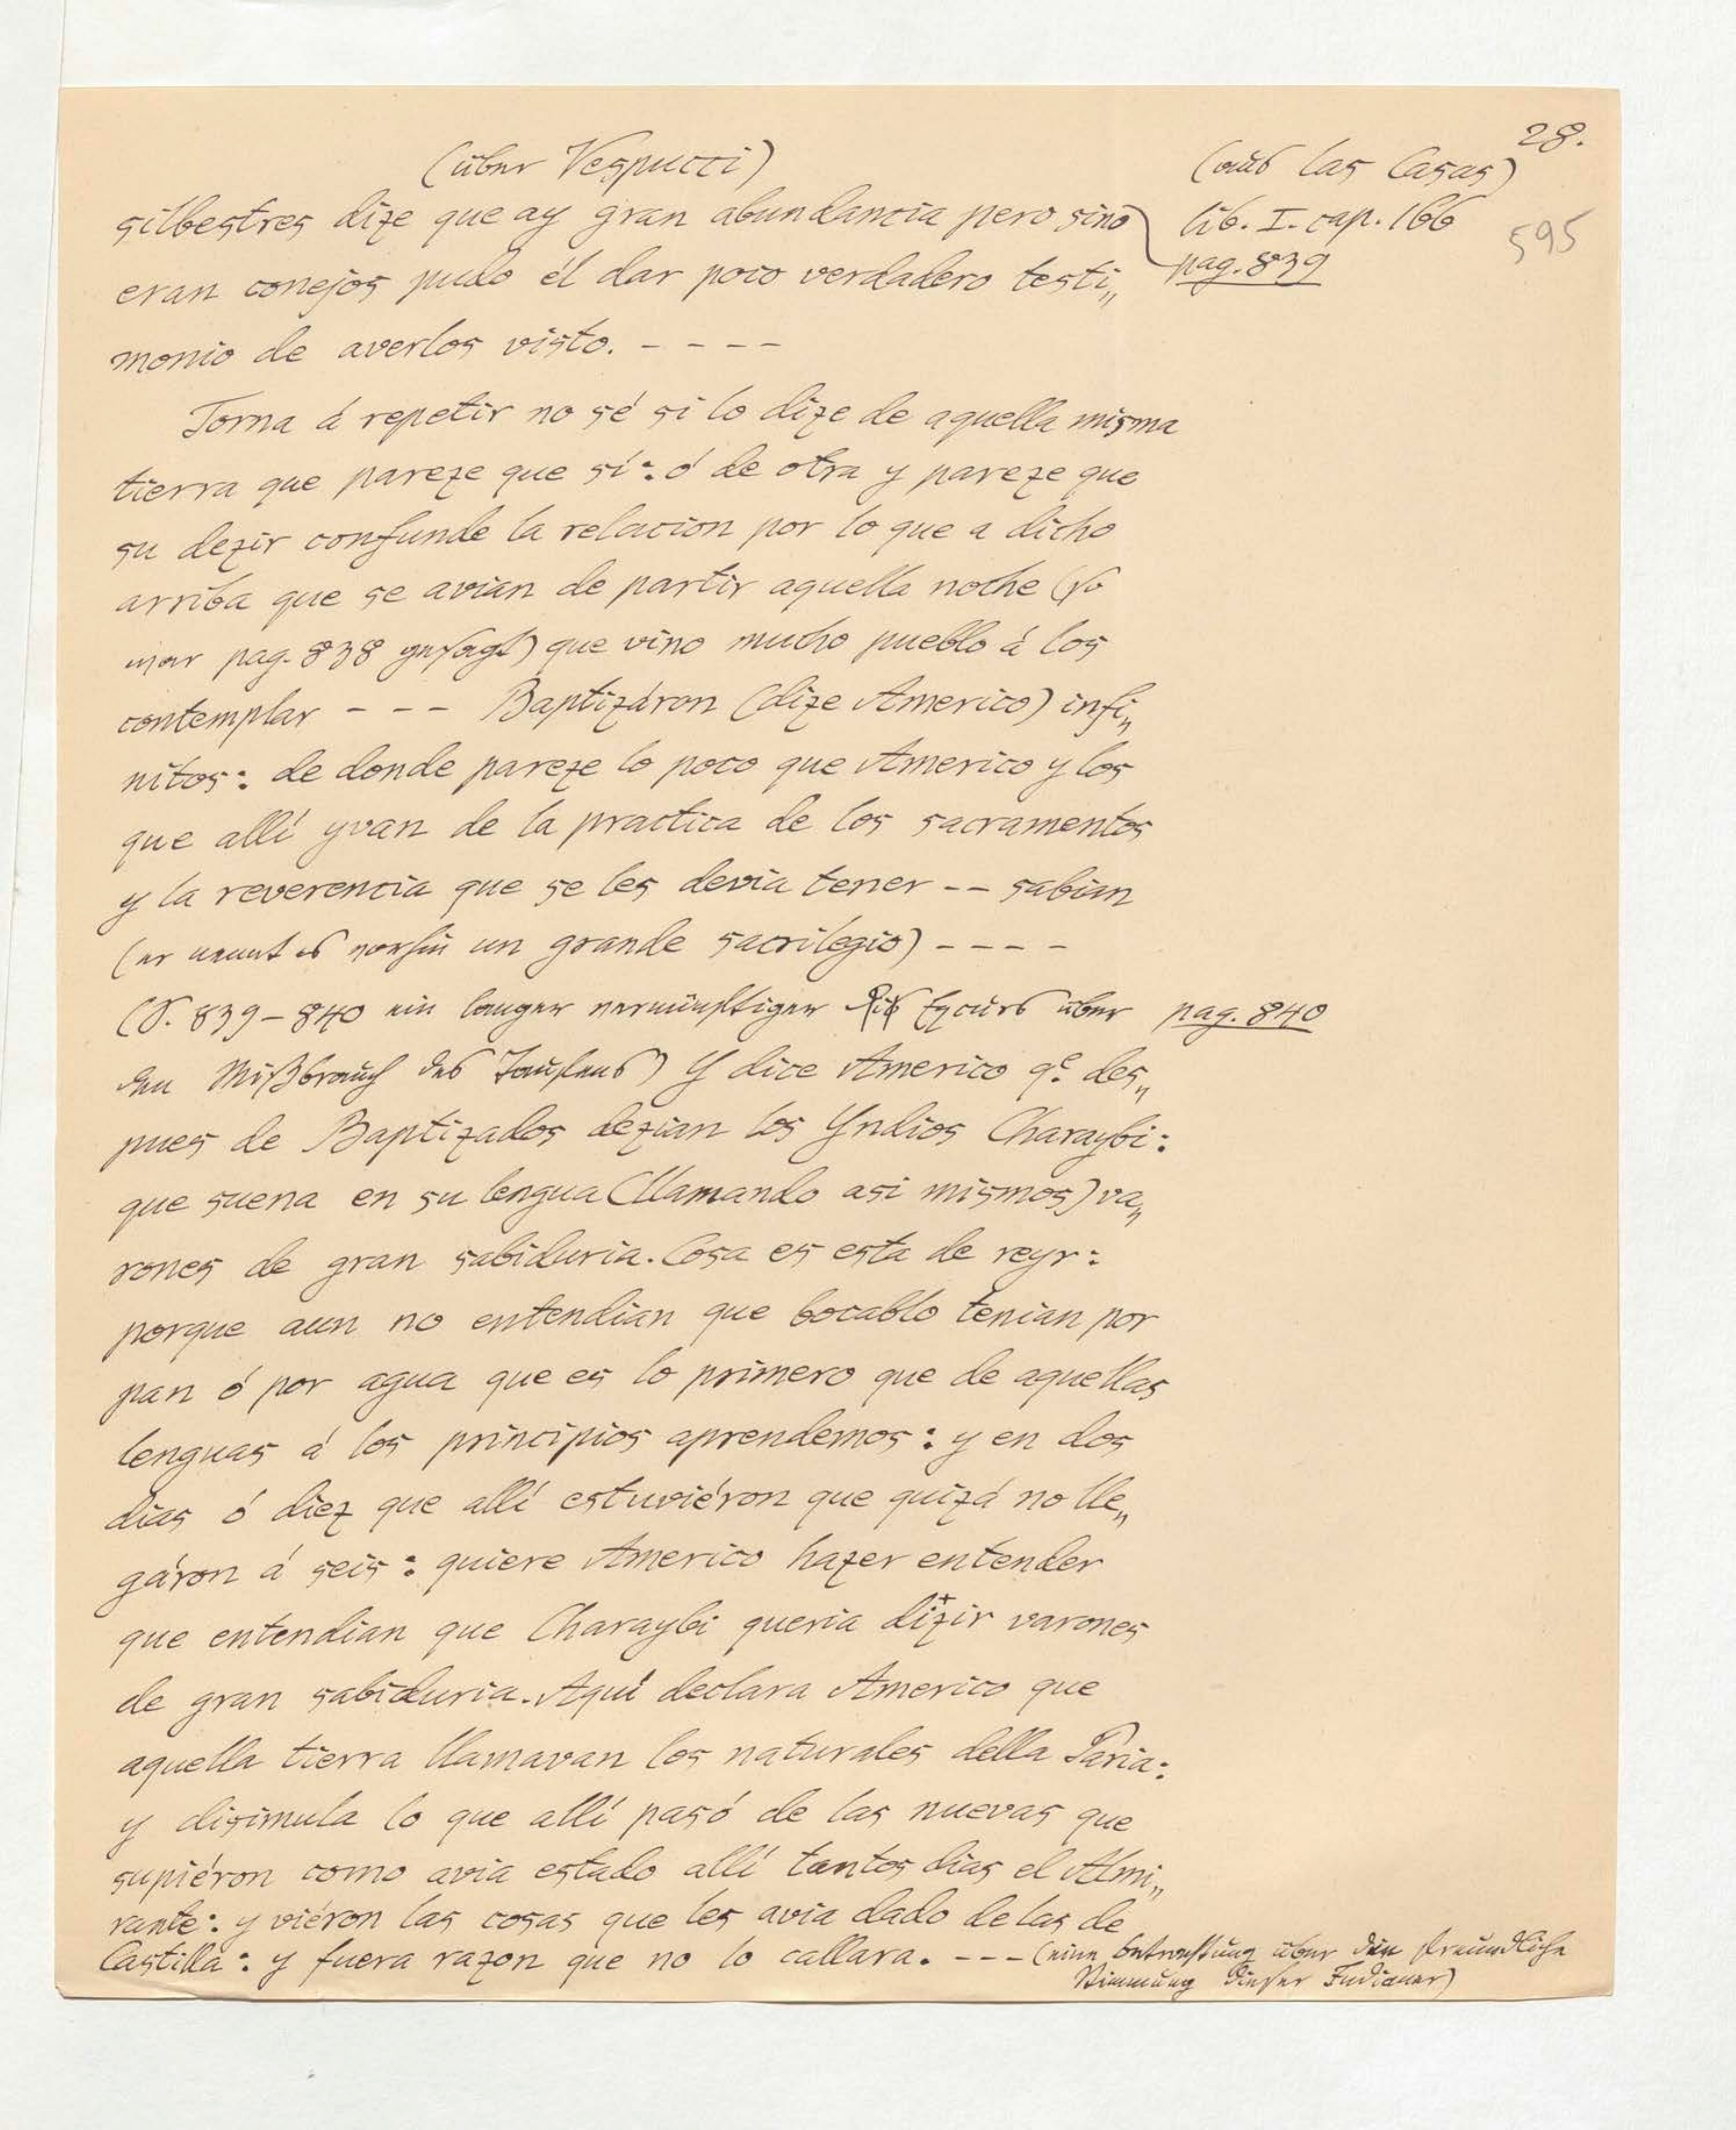 28.
(über Vespucci)
(aus las Casas)
silbestres dize que ay gran abundancia pero sino
lib. I. cap. 166
595
eran conejos pudo él dar poco verdadero testi„
pag. 839
monio de averlos visto. - - - -
Torna á repetir no sé si lo dize de aquella misma
tierra que pareze que sí: ó de otra y pareze que
su dezir confunde la relacion por lo que a dicho
arriba que se avian de partir aquella noche (so
war pag. 838 gesagt) que vino mucho pueblo á los
contemplar - - - Baptizáron (dize Americo) infi„
nitos: de donde pareze lo poco que Americo y los
que allí yvan de la practica de los sacramentos
y la reverencia que se les devia tener -- sabian
(er nennt es un grande sacrilegio) - - - -
(S. 839-840 ein langer vernünftiger Excurs über
pag. 840
den Mißbrauch des Taufens) Y dice Americo q.e des„
pues de Baptizados dezian los Yndios Charaybi:
que suena en su lengua (llamando asi mismos) va„
rones de gran sabiduria. Cosa es esta de reyr:
porque aun no entendian que bocablo tenian por
pan ó por agua que es lo primero que de aquellas
lenguas á los principios aprendemos: y en dos
dias ó diez que allí estuviéron que quizá no lle„
gáron á seis: quiere Americo hazer entender
que entendian que Charaybi queria dizir varones
de gran sabiduria. Aquí declara Americo que
aquella tierra llamavan los naturales della Paria:
y disimula lo que allí pasó de las nuevas que
supiéron como avia estado allí tantos dias el Almi„
rante: y viéron las cosas que les avia dado de las de
Castilla: y fuera razon que no lo callara. - - - (eine Betrachtung über die freundliche
Stimmung dieser Indianer)